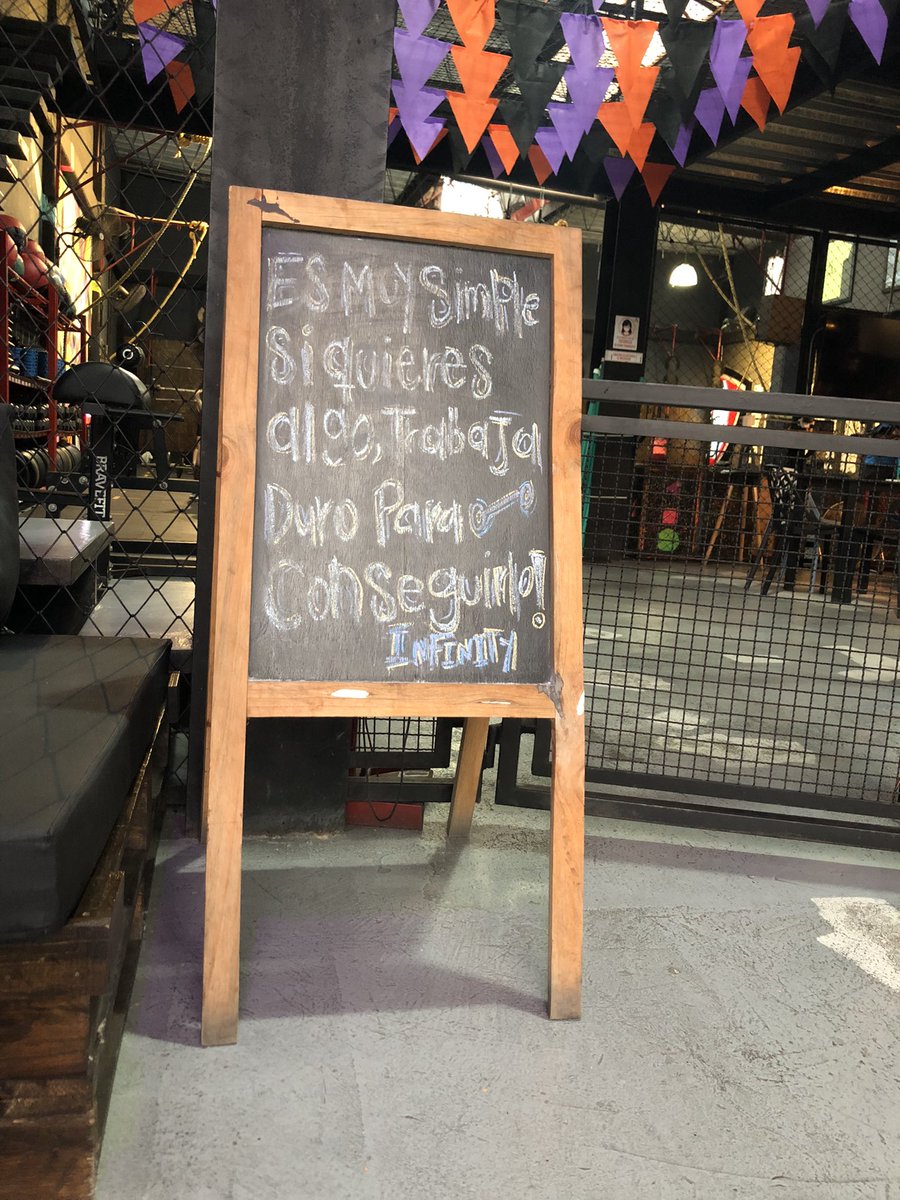 Es Muy Simple
Si quieres
algo, Trabaja
Duro Para
Conseguirlo!
INFINITY
BRAVEFIT